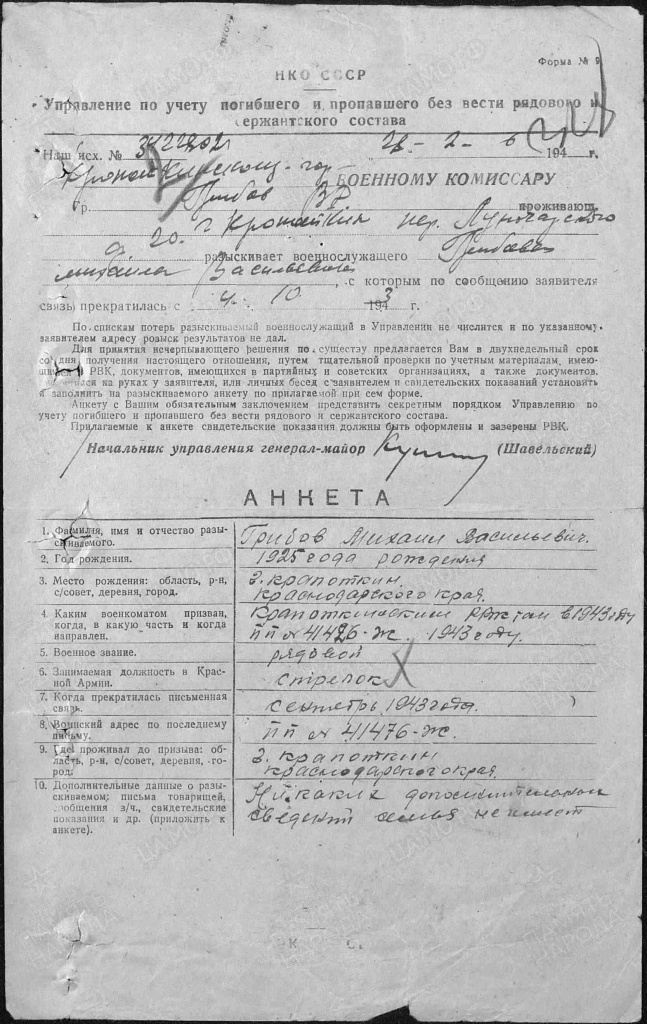 Форма № 9
НКО СССР
Управление по учету погибшего и пропавшего без вести рядового и
сержантского состава
Наш исх. № 28 - 2 - 6 194 г.
ВОЕННОМУ КОМИССАРУ
Гр. Грибов проживающ.
д. 20. г Кропоткин пер. Луначарского
разыскивает военнослужащего Грибова
михаила Васильевича, с которым по сообщению заявителя
связь прекратилась с 4. 10 1943 г.
По спискам потерь разыскиваемый военнослужащий в Управлении не числится и по указанному
заявителем адресу розыск результатов не дал.
Для принятия исчерпывающего решения по существу предлагается Вам в двухнедельный срок
со дня получения настоящего отношения, путем тщательной проверки по учетным материалам, имею-
щимся РВК, документов, имеющихся в партийных и советских организациях, а также документов,
имеющихся на руках у заявителя, или личных бесед с заявителем и свидетельских показаний установить
и заполнить на разыскиваемого анкету по прилагаемой при сем форме.
Анкету с Вашим обязательным заключением представить секретным порядком Управлению по
учету погибшего и пропавшего без вести рядового и сержантского состава.
Прилагаемые к анкете свидетельские показания должны быть оформлены и заверены РВК.
Начальник управления генерал-майор (Шавельский)
АНКЕТА
1. Фамилия, имя и отчество разы- Грибов Михаил Васильевич.
скиваемого.
2. Год рождения. 1925 года рождения
3. Место рождения: область, р-н, г. крапоткин.
с/совет, деревня, город. Краснодарского края.
4. Каким военкоматом призван, Крапоткинским в 1943 году
когда, в какую часть и когда пп № 41476-ж. 1943 году.
направлен.
5. Военное звание. рядовой
6. Занимаемая должность в Крас- стрелок
ной Армии.
7. Когда прекратилась письменная сентябрь 1943 года.
связь.
8. Воинский адрес по последнему пп № 41476-ж.
письму.
9. Где проживал до призыва: об- г. крапоткин
ласть, р-н, с/совет, деревня, го- краснодарского края.
род.
10. Дополнительные данные о разы- Ни каких дополнительных
скиваемом; письма товарищей, сведений семья не имеет
сообщения в/ч, свидетельские
показания и др. (приложить к
анкете).